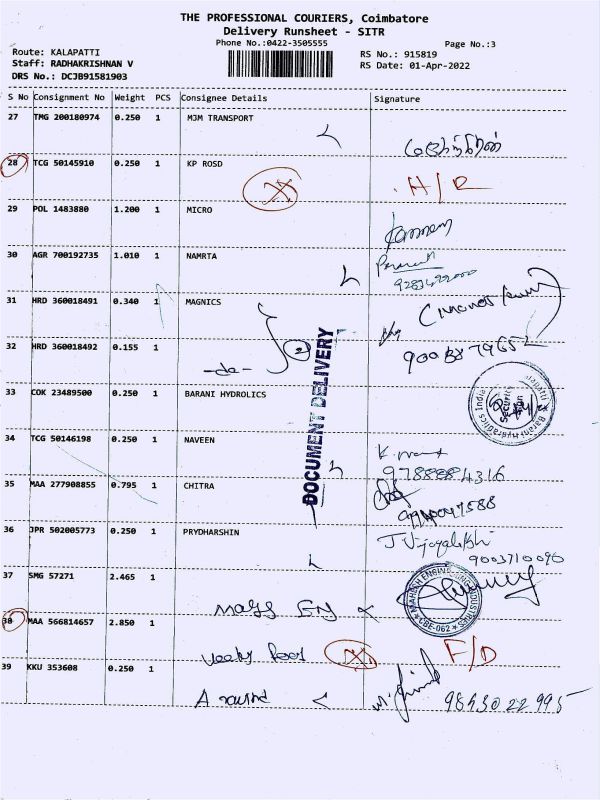 THE PROFESSIONAL COURIERS, Coimbatore
Delivery Runsheet - SITR
Phone No.:0422-3505555
Page No.:3
Route: KALAPATTI
Staff: RADHAKRISHNAN V
DRS No.: DCJB91581903
RS No.: 915819
RS Date: 01-Apr-2022
S No Consignment No Weight PCS Consignee Details Signature
27 TMG 200180974 0.250 1 MJM TRANSPORT
28 TCG 50145910 0.250 1 KP ROSD
H/R
29 POL 1483880 1.200 1 MICRO
30 AGR 700192735 1.010 1 NAMRTA
31 HRD 360018491 0.340 1 MAGNICS
32 HRD 360018492 0.155 1
-do- 2
DOCUMENT DELIVERY
33 COK 23489500 0.250 1 BARANI HYDROLICS
Barani Hydraulics India
Security
34 TCG 50146198 0.250 1 NAVEEN
9788884316
35 MAA 277908855 0.795 1 CHITRA
36 JPR 502005773 0.250 1 PRYDHARSHIN
9003710090
37 SMG 57271 2.465 1
MAHESH ENGINEERING INDUSTRIES
CBE-062
38 MAA 566814657 2.850 1
F/D
39 KKU 353608 0.250 1
98430 22995